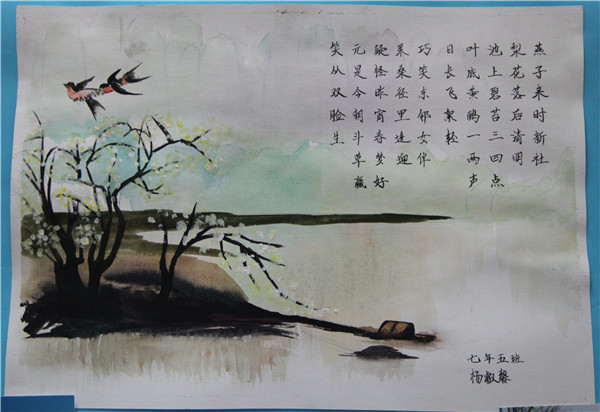 燕子来时新社
梨花落后清明
池上碧苔三四点
叶底黄鹂一两声
日长飞絮轻
巧笑东邻女伴
采桑径里逢迎
疑怪昨宵春梦好
元是今朝斗草赢
笑从双脸生
七年五班
杨